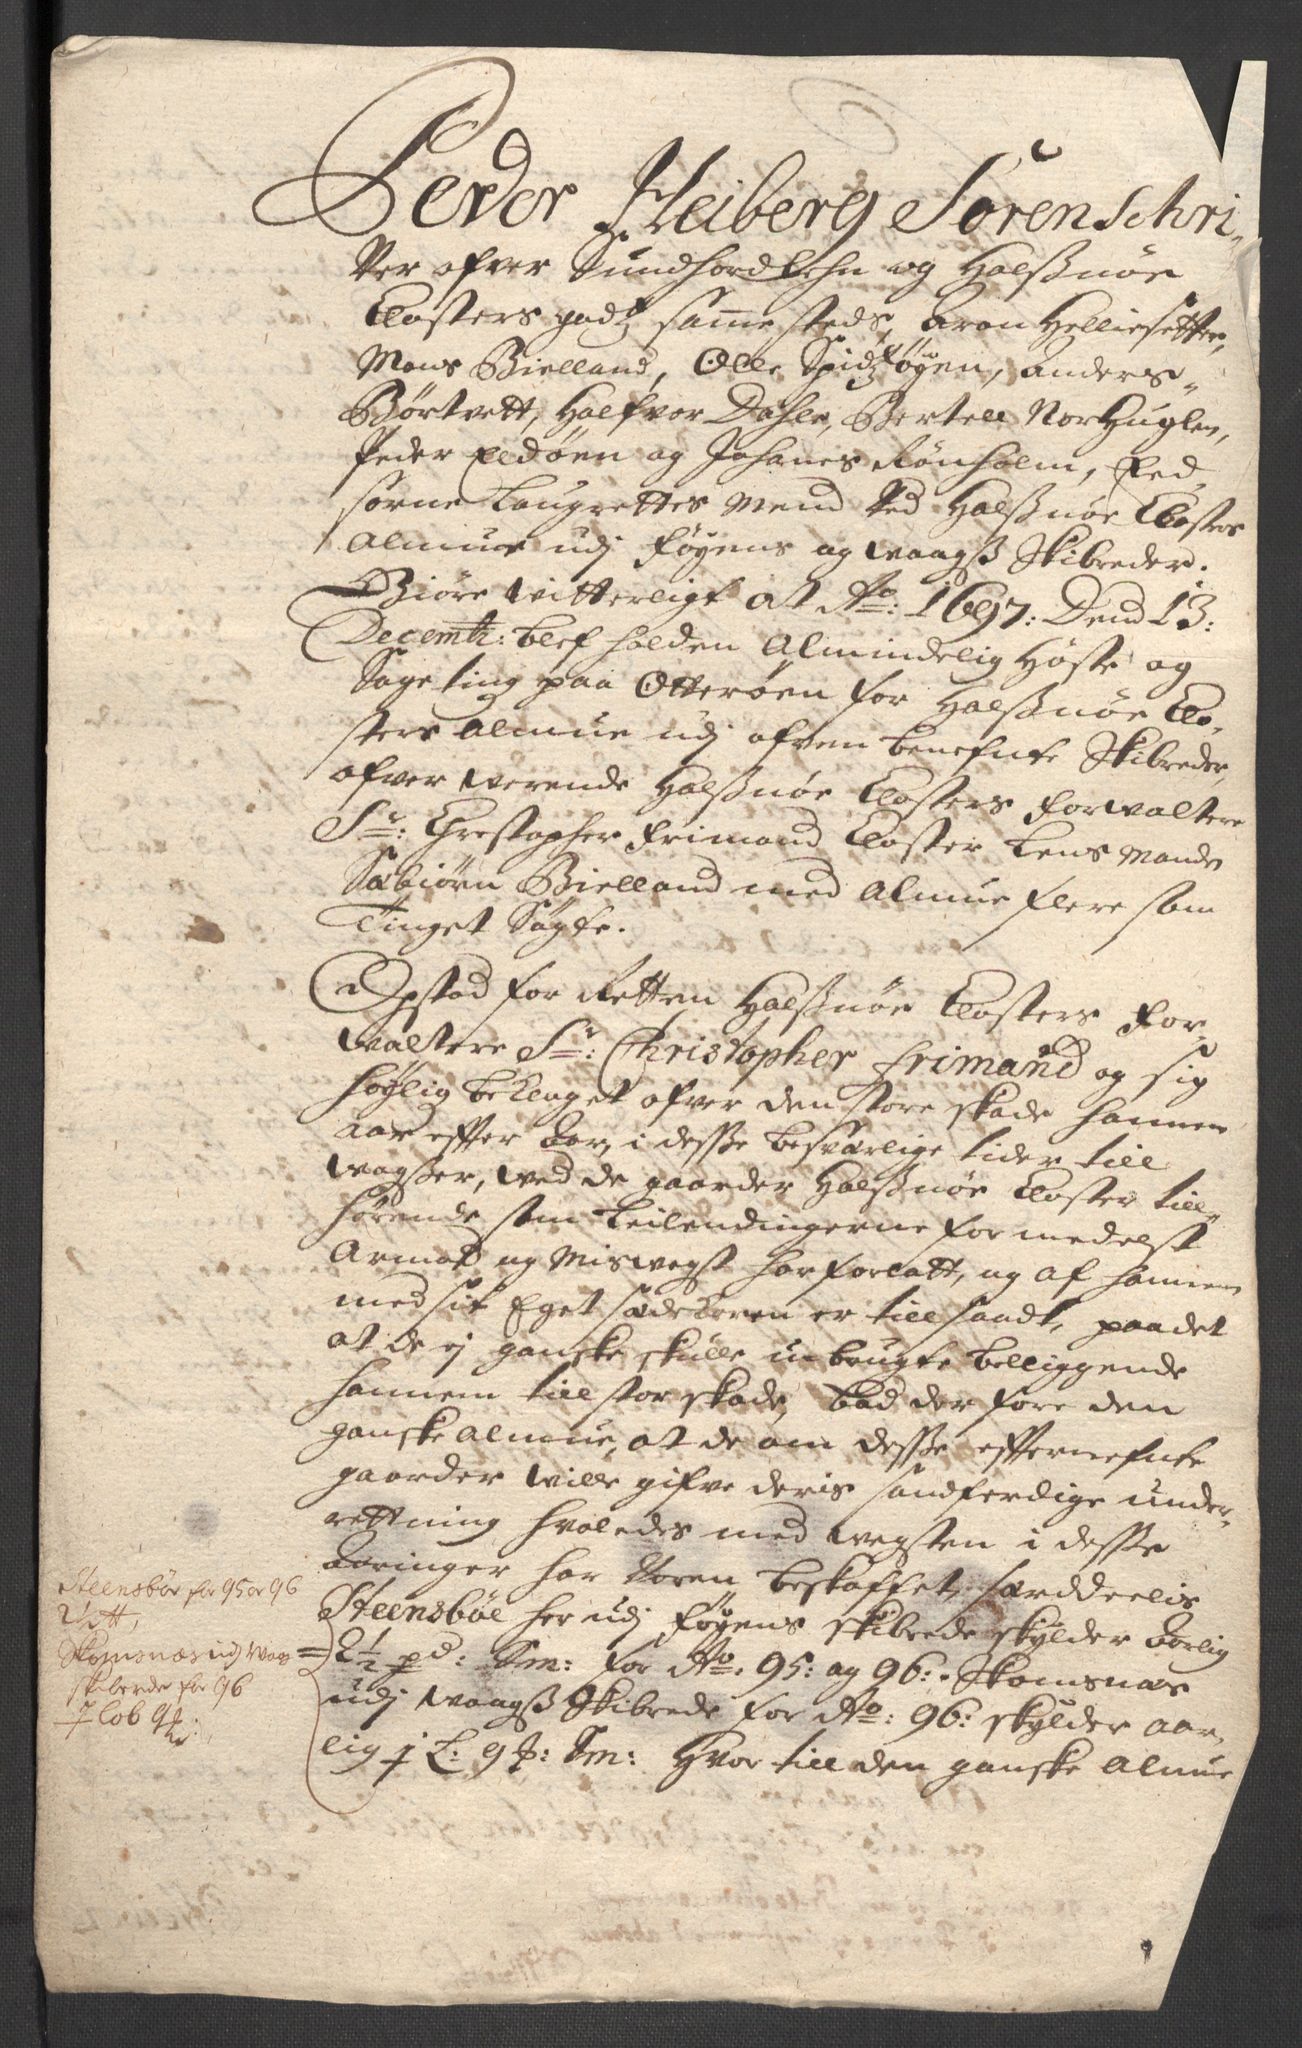 Peder Heiberg Sorenschri-
Ver ofver Sundhordlehn og Halssnøe
Closters godz samme steds, Aron Helliesetter,
Mons Bielland, Olle Spidzøyen, Anders
Børtvett, Halfvor Dahle, Bertell Nor Huglen,
Peder Eldøen og Johanes Rønholm, Eed
sorne Laugrettes Mend Ved Halssnøe Closters
Almue udj føyens og Waags Skibreder.
Giøre Witterligt at Ao: 1697: Dend 13:
Decembr: blef holden Almindelig Høste og
Sageting paa Otterøen for Halssnøe Clo-
sters Almue udj ofven benefnte Skibreder,
ofver werende Halssnøe Closters Forwaltere
Sr: Christopher Frimand Closter Lens Mand
Sæbiørn Bielland med Almue flere som
Tinget Søgte.
Opstod for Retten Halssnøe Closters For
waltere Sr: Christopher Frimand og sig
høylig beklaget ofver den store skade hannem
aar effter aar, i desse besværlige tider till
wogsser, wed de gaarder Halssnøe Closter till
hørende som Leilendingerne formedelst
Armod og Miswegst har forlatt, og af hannem
med sit Eget sædekoren er till saadt, paadet
at de ej ganske skulle ubrugte beliggende
hannem till stor skade, bad der fore den
ganske Almue, at de om desse effternefnte
gaarder wille gifve deris sandferdige under-
rettning hvoledes med wegsten i desse
Aaringer har Voren beskaffet, særdeelis
Steensbøe her udj føyens skibrede skylder Aarlig
2½ pd: Sm: for Ao. 95: og 96: Skomsnæs
udj Waags Skibrede for Ao: 96: skylder aar
lig j L: 9 : Sm: Hvor till den ganske Almue
Steensbøe for 95 or 96
Skomsnæs udj Wags
skibrede for 96
j lob 9